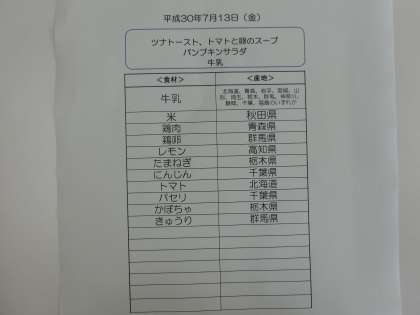 平成30年7月13日（金）
ツナトースト、トマトと卵のスープ
パンプキンサラダ
牛乳
＜食材＞ ＜産地＞
牛乳 北海道、青森、岩手、宮城、山
形、埼玉、栃木、群馬、神奈川、
静岡、千葉、福島のいずれか
米 秋田県
鶏肉 青森県
鶏卵 群馬県
レモン 高知県
たまねぎ 栃木県
にんじん 千葉県
トマト 北海道
パセリ 千葉県
かぼちゃ 栃木県
きゅうり 群馬県